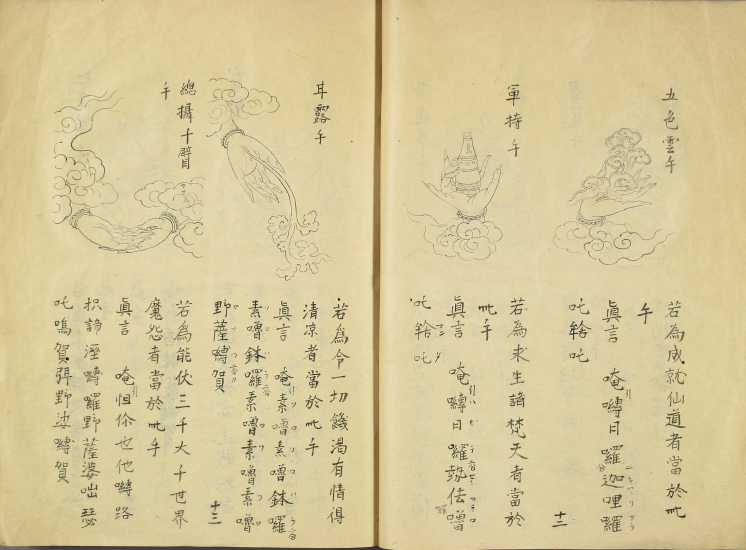 五色雲手
若為成就仙道者當於此
手
真言 唵嚩日羅迦哩羅
吒𤙖吒
軍持手
若為求生諸梵天者當於
此手
真言 唵嚩日羅勢佉嚕
吒𤙖吒
十二
甘露手
若為令一切饑渴有情得
清凉者當於此手
真言 唵素嚕素嚕鉢羅
素嚕鉢羅素嚕素嚕
野薩嚩賀
總攝千臂
手
若為能伏三千大千世界
魔怨者當於此手
真言 唵怛你也他嚩路
枳諦溼嚩羅野薩婆咄瑟
吒嗚賀弭野娑嚩賀
十三